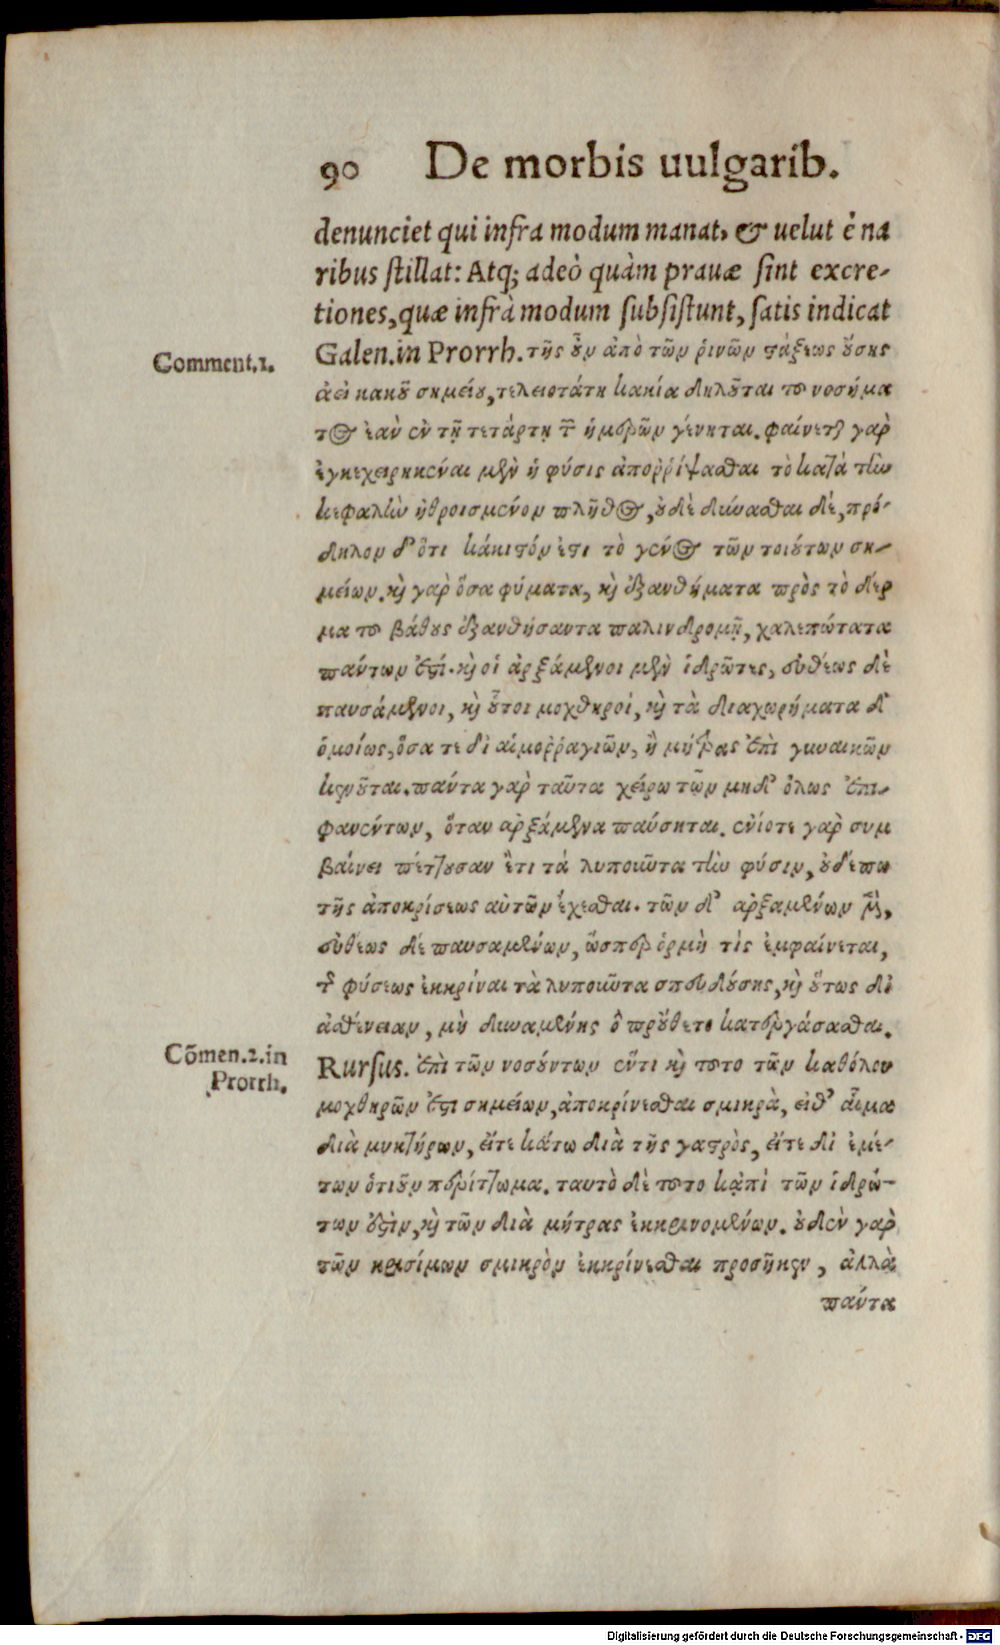 90 De morbis uulgarib.
denunciet qui infra modum manat, & uelut è na
ribus stillat: Atq; adeò quàm prauæ sint excre-
tiones, quæ infrà modum subsistunt, satis indicat
Comment.1.
Galen. in Prorrh. τῆς οὖν ἀπὸ τῶν ῥινῶν στάξεως οὔσης
ἀεὶ κακοῦ σημείου, τελειοτάτη κακία δηλοῦται τοῦ νοσήμα
τος ἐὰν ἐν τῇ τετάρτῃ τῶν ἡμερῶν γένηται. φαίνεται γὰρ
ἐγκεχειρηκέναι μὲν ἡ φύσις ἀποῤῥίψασθαι τὸ κατὰ τὴν
κεφαλὴν ἠθροισμένον πλῆθος, οὐδὲ δύνασθαι δέ, πρό-
δηλον δ' ὅτι κάκιστόν ἐστι τὸ γένος τῶν τοιούτων ση-
μείων. καὶ γὰρ ὅσα φύματα, καὶ ἐξανθήματα πρὸς τὸ δέρ
μα τοῦ βάθους ἐξανθήσαντα παλινδρομῇ, χαλεπώτατα
πάντων ἐστί. καὶ οἱ ἀρξάμενοι μὲν ἱδρῶτες, εὐθέως δὲ
παυσάμενοι, καὶ οὗτοι μοχθηροί, καὶ τὰ διαχωρήματα δ'
ὁμοίως, ὅσα τε δι' αἱμοῤῥαγιῶν, ἢ μήτρας ἐπὶ γυναικῶν
κενοῦται. πάντα γὰρ ταῦτα χείρω τῶν μηδ' ὅλως ἐπι-
φανέντων, ὅταν ἀρξάμενα παύσηται. ἐνίοτε γὰρ συμ
βαίνει πέττουσαν ἔτι τὰ λυποιῦντα τὴν φύσιν, οὐδέπω
τῆς ἀποκρίσεως αὐτῶν ἔχεσθαι. τῶν δ' ἀρξαμένων μὲν,
εὐθέως δὲ παυσαμένων, ὥσπερ ὁρμὴ τὶς ἐμφαίνεται,
τῆς φύσεως ἐκκρίναι τὰ λυποιῦντα σπευδούσης, καὶ οὕτως δι'
ἀσθένειαν, μὴ δυναμένης ὃ προὔθετο κατεργάσασθαι.
Cõmen.2.in
Prorrh.
Rursus. ἐπὶ τῶν νοσούντων ἕν τι καὶ τοῦτο τῶν καθόλου
μοχθηρῶν ἐστι σημείων, ἀποκρίνεσθαι σμικρὰ, εἴθ' αἷμα
διὰ μυκτήρων, εἴτε κάτω διὰ τῆς γαστρὸς, εἴτε δι' ἐμέ-
των ὁτιοῦν περίττωμα. ταυτὸ δὲ τοῦτο κἀπὶ τῶν ἱδρώ-
των ἐστὶν, καὶ τῶν διὰ μήτρας ἐκκρινομένων. οὐδὲν γὰρ
τῶν κρισίμων σμικρὸν ἐκκρίνεσθαι προσῆκεν, ἀλλὰ
πάντα
Digitalisierung gefördert durch die Deutsche Forschungsgemeinschaft - DFG